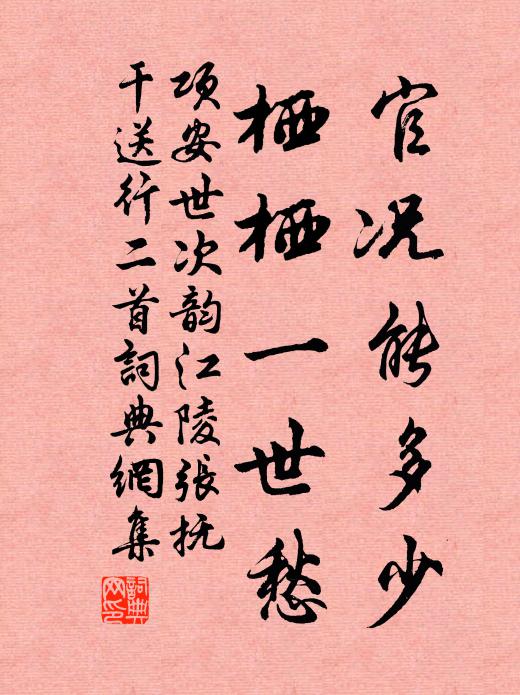 官况能多少
栖栖一世愁
项安世次韵江陵张抚
干送行二首词典網集
詞典
网印